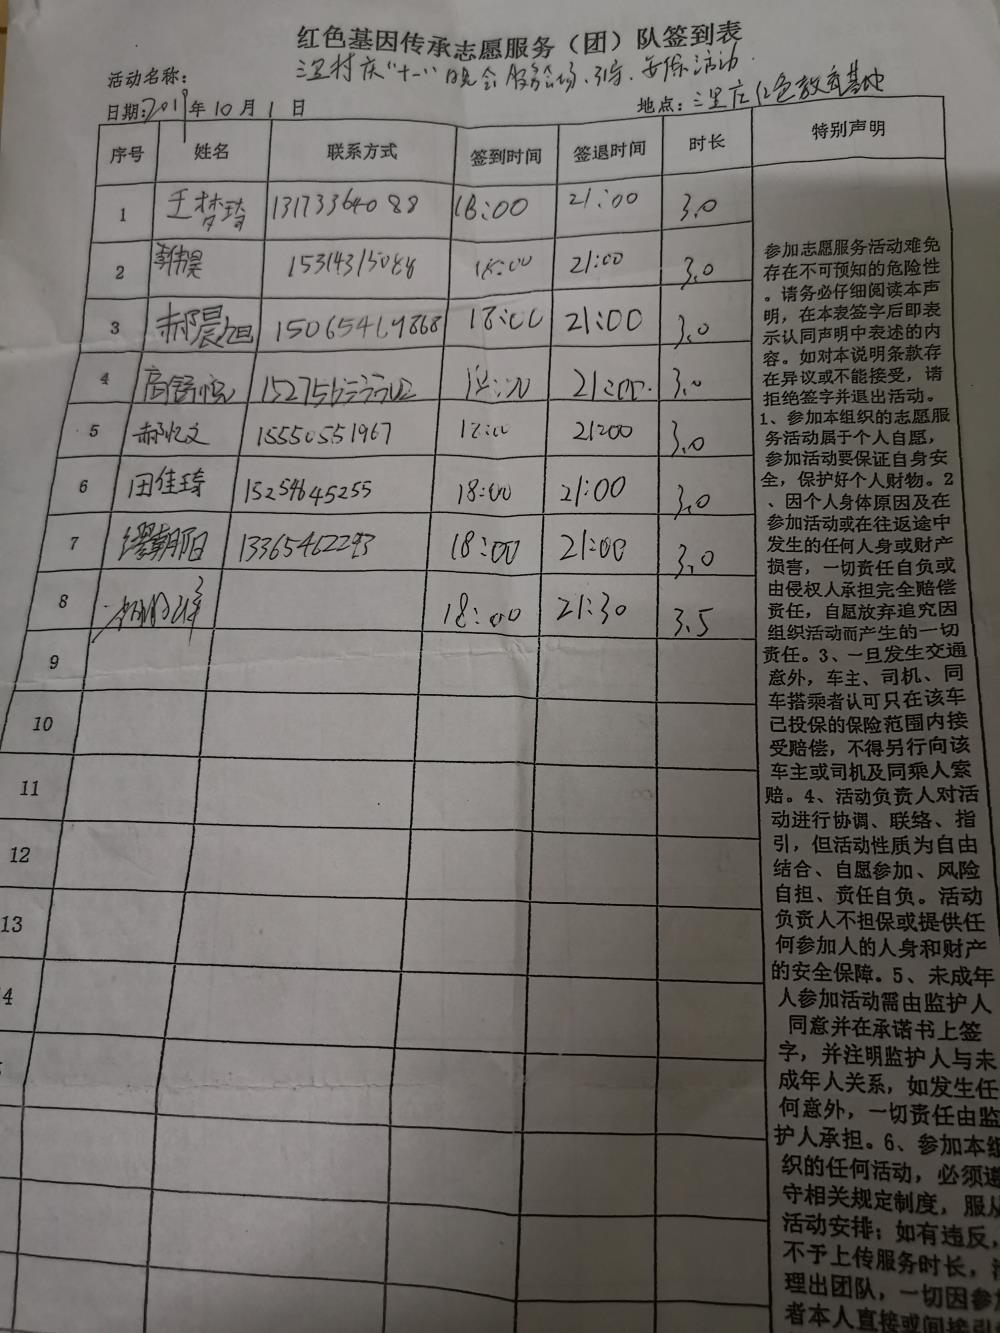 红色基因传承志愿服务（团）队签到表
活动名称： 三里村庆“十一”晚会服务会场、引导、安保活动
日期：2019年10月1日 地点：三里庄红色教育基地
序号 姓名 联系方式 签到时间 签退时间 时长 特别声明
1 王梦琦 13173364088 18:00 21:00 3.0
2 15314315088 18:00 21:00 3.0
3 郝晨旭 150654619868 18:00 21:00 3.0
4 18:00 21:00. 3.0
5 郝忆文 15550551967 18:00 21:00 3.0
6 田佳琦 15254645255 18:00 21:00 3.0
7 朝阳 13365462293 18:00 21:00 3.0
8 18:00 21:30 3.5
9
10
11
12
13
4
参加志愿服务活动难免
存在不可预知的危险性
。请务必仔细阅读本声
明，在本表签字后即表
示认同声明中表述的内
容。如对本说明条款存
在异议或不能接受，请
拒绝签字并退出活动。
1、参加本组织的志愿服
务活动属于个人自愿，
参加活动要保证自身安
全，保护好个人财物。2
、因个人身体原因及在
参加活动或在往返途中
发生的任何人身或财产
损害，一切责任自负或
由侵权人承担完全赔偿
责任，自愿放弃追究因
组织活动而产生的一切
责任。3、一旦发生交通
意外，车主、司机、同
车搭乘者认可只在该车
已投保的保险范围内接
受赔偿，不得另行向该
车主或司机及同乘人索
赔。4、活动负责人对活
动进行协调、联络、指
引，但活动性质为自由
结合、自愿参加、风险
自担、责任自负。活动
负责人不担保或提供任
何参加人的人身和财产
的安全保障。5、未成年
人参加活动需由监护人
同意并在承诺书上签
字，并注明监护人与未
成年人关系，如发生任
何意外，一切责任由监
护人承担。6、参加本组
织的任何活动，必须遵
守相关规定制度，服从
活动安排；如有违反，
不予上传服务时长，清
理出团队，一切因参加
者本人直接或间接引